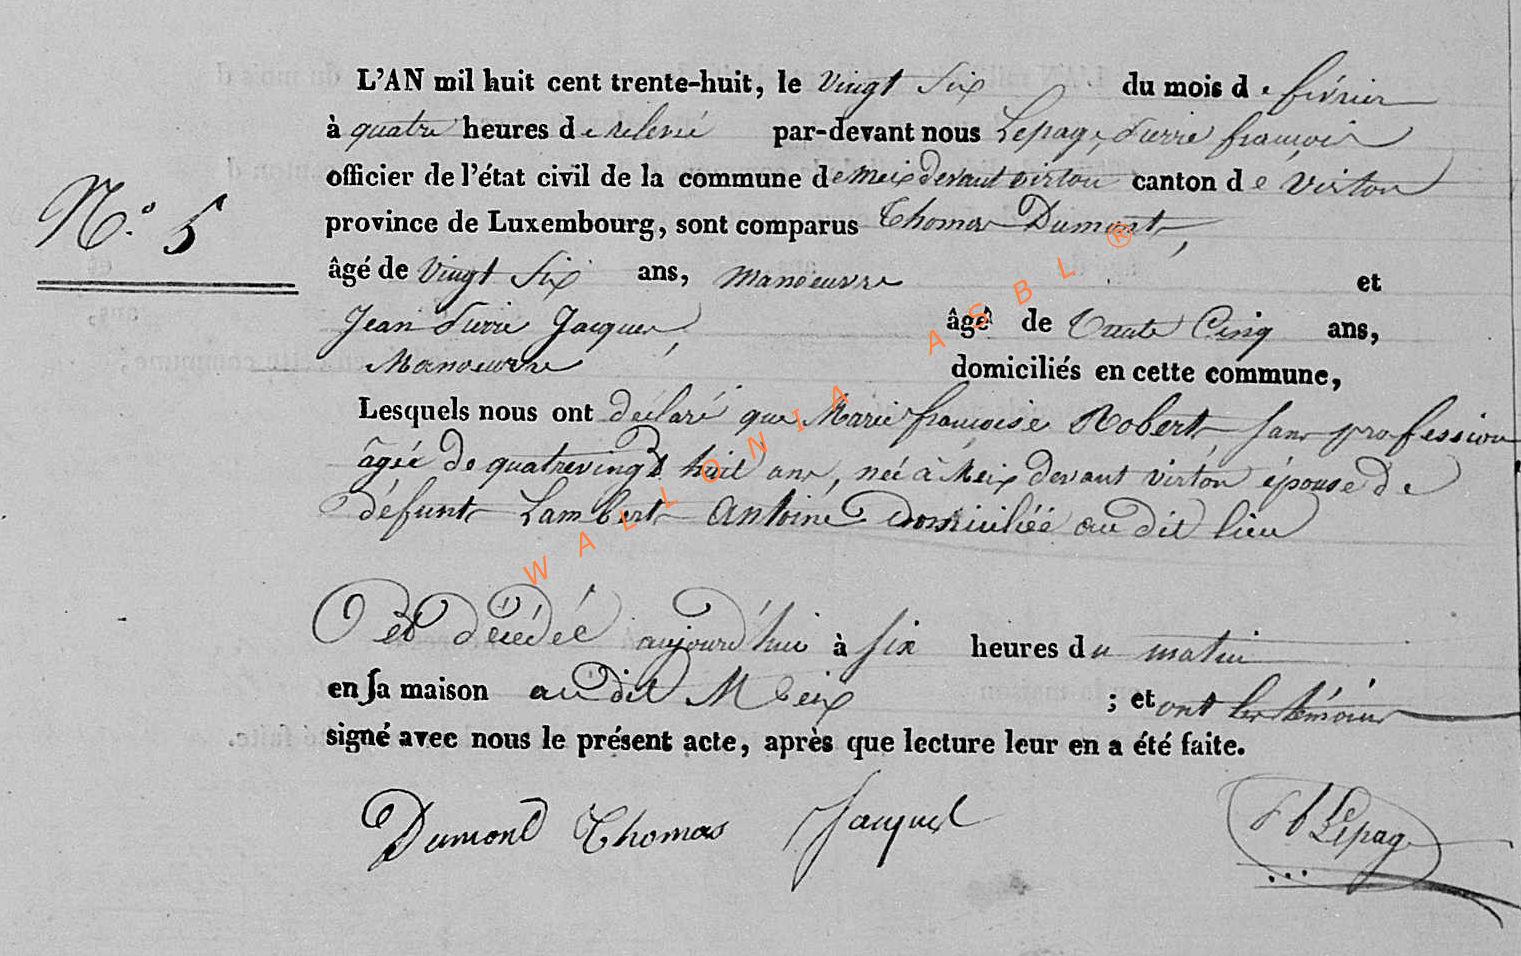 L'AN mil huit cent trente-huit, le vingt six du mois de février
à quatre heures de relevée par-devant nous Lepage, Pierre françois
officier de l'état civil de la commune de meix devant virton canton de virton
N.° 5
province de Luxembourg, sont comparus Thomas Dumont,
âgé de vingt six ans, manoeuvre et
Jean Pierre Jacques, âgé de trente cinq ans,
Manoeuvre domiciliés en cette commune,
Lesquels nous ont déclaré que Marie françoise Robert sans profession
âgée de quatrevingt huit ans, née à Meix devant virton épouse de
défunt Lambert Antoine domiciliée au dit lieu
est décédée aujourd'hui à six heures du matin
en sa maison au dit Meix ; et ont les témoins
signé avec nous le présent acte, après que lecture leur en a été faite.
Dumont Thomas Jacques Lepage
WALLONIA ASBL ®